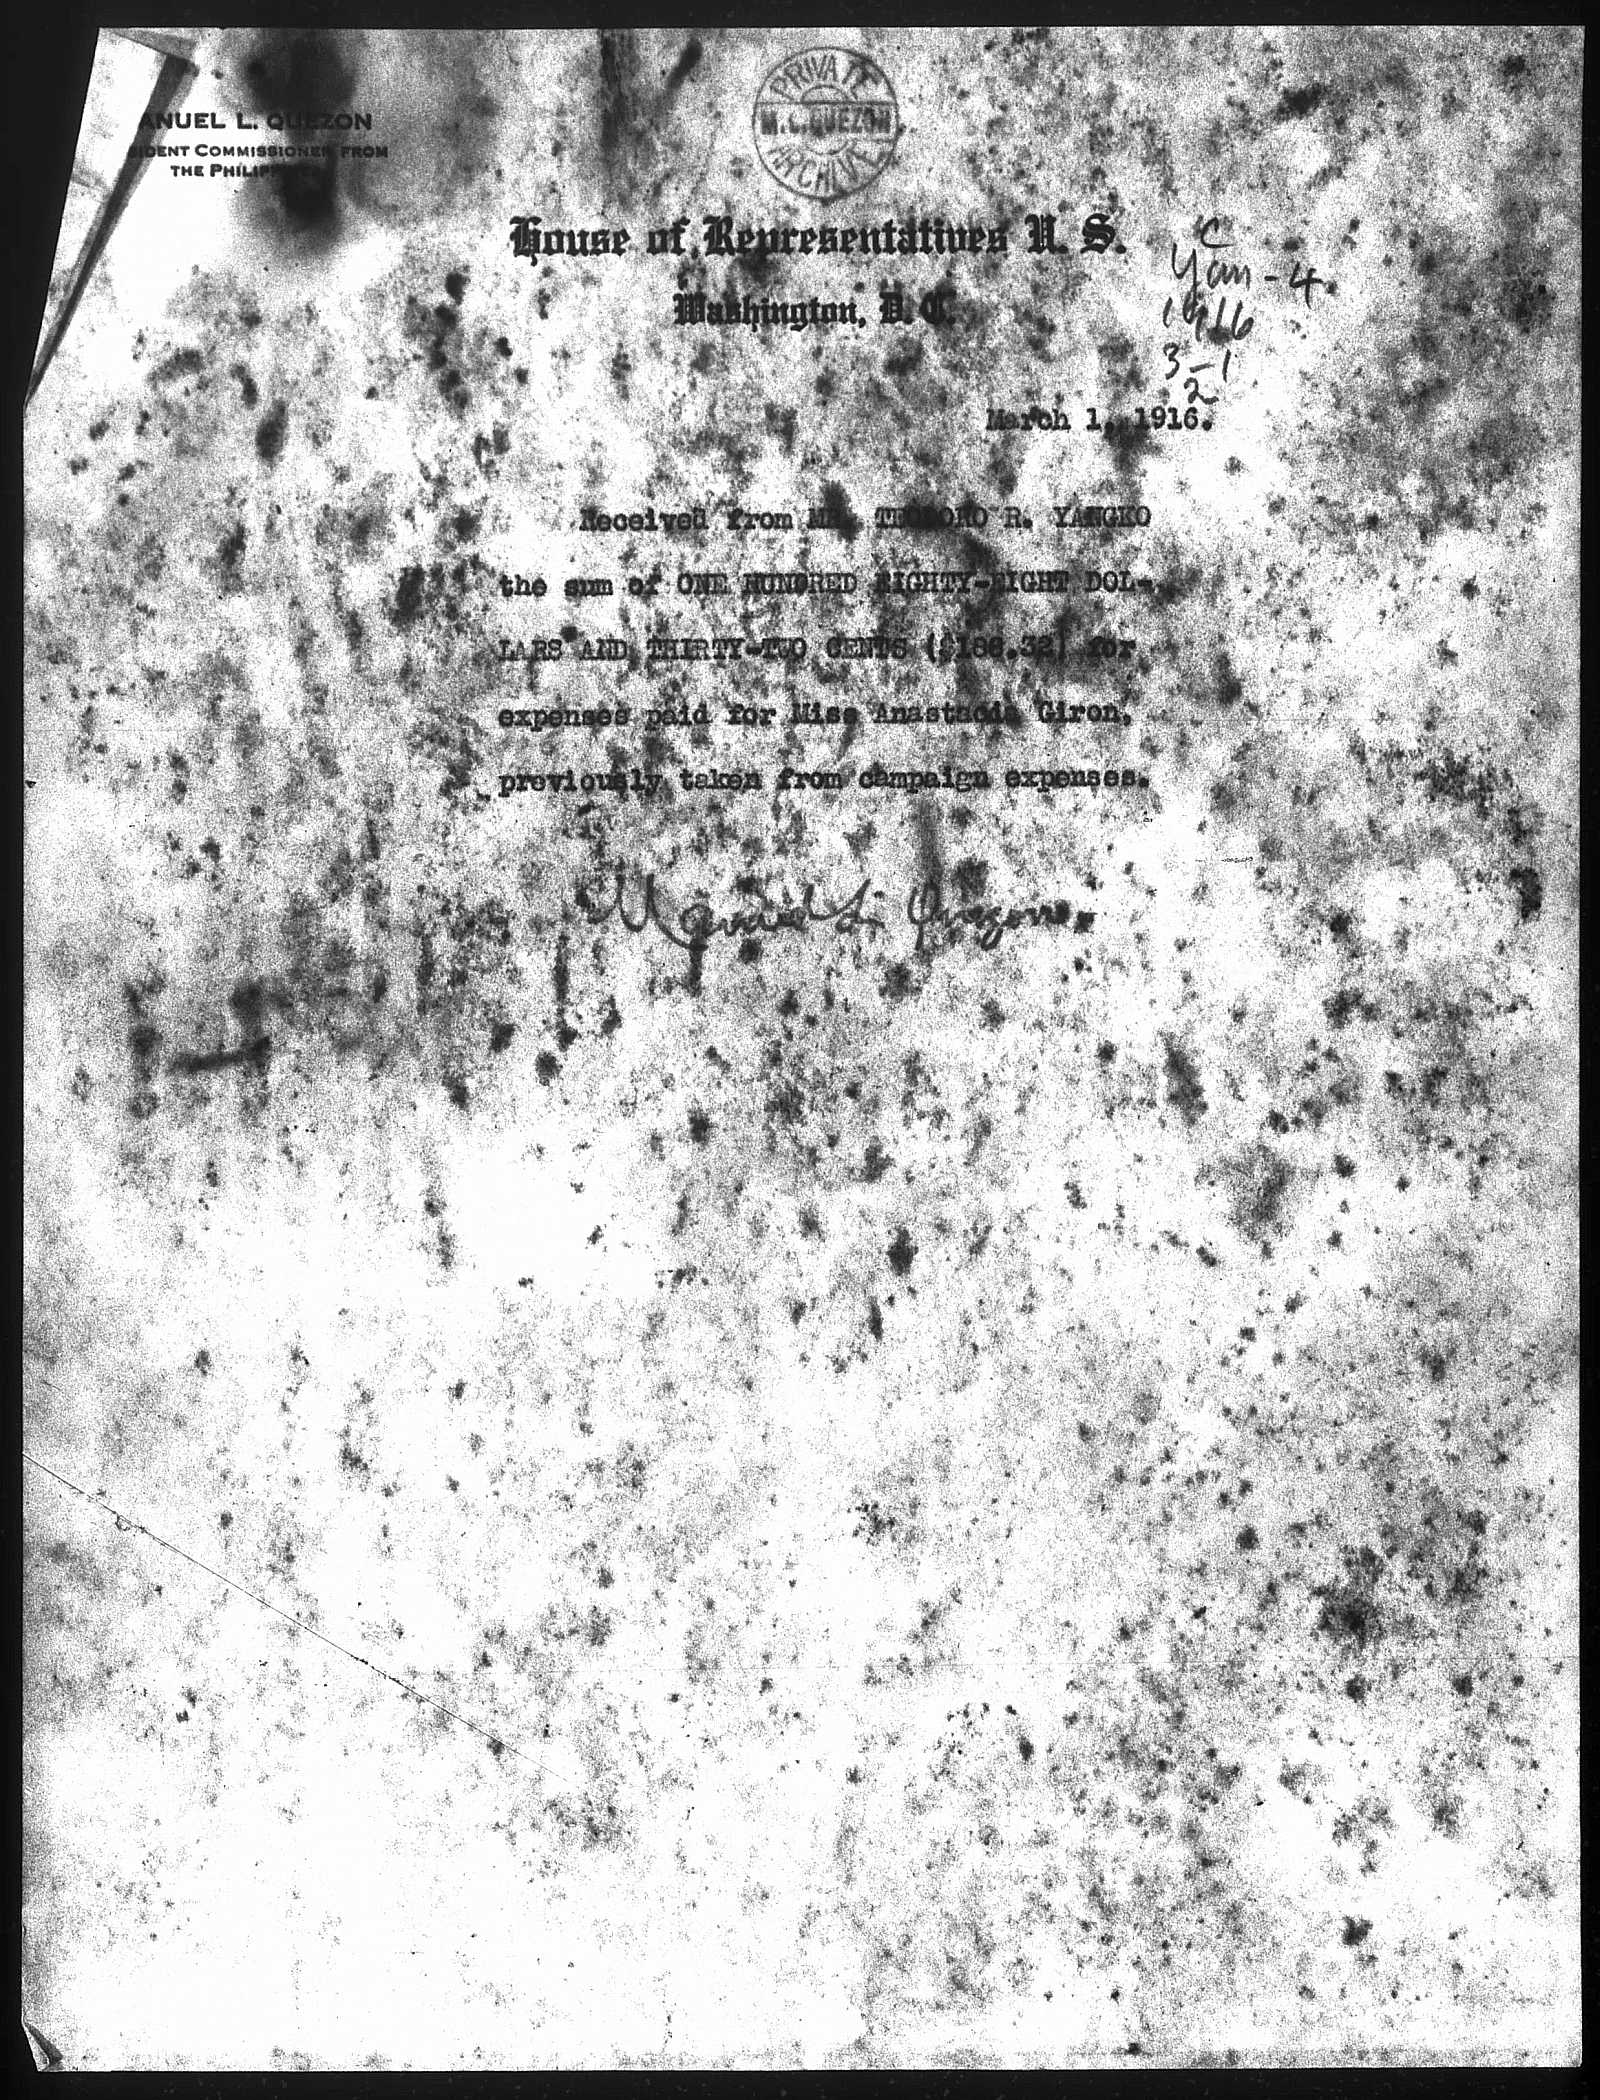 ANUEL L. QUEZON
IDENT COMMISSIONER FROM
THE PHILIPPINES
PRIVATE
M.L.QUEZON
ARCHIVE
House of Representatives U. S.
Washington, D. C.
C
Yan-4.
1916
3-1
2
March 1, 1916.
Received from MR. TEODORO R. YANGKO
the sum of ONE HUNDRED EIGHTY-EIGHT DOL-
LARS AND THIRTY-TWO CENTS ($188.32) for
expenses paid for Miss Anastacia Giron,
previously taken from campaign expenses.
Manuel L. Quezon.